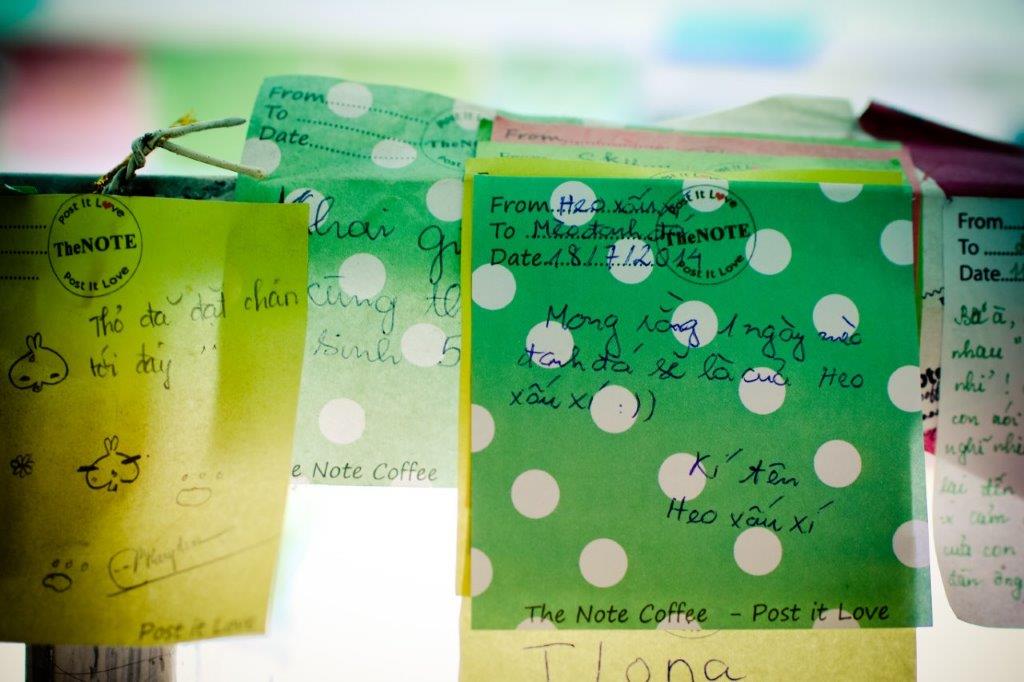 Post it Love
TheNOTE
Post it Love
Thỏ đã đặt chân
tới đây
Post it Love
From
To
Date
Post
khai
cùng
sinh 5
e Note Coffee
From
From Heo xấu xí
To Mèo đanh đá
Date 18.7.2014
Post it Love
TheNOTE
Post it Love
Mong rằng 1 ngày nào
đanh đá sẽ là của Heo
xấu xí :))
Kí tên
Heo xấu xí
The Note Coffee - Post it Love
Ilona
From
To
Date
nhau
nhỉ !
con nói
nghĩ
lại đến
vì cảm
của con
đàn ông